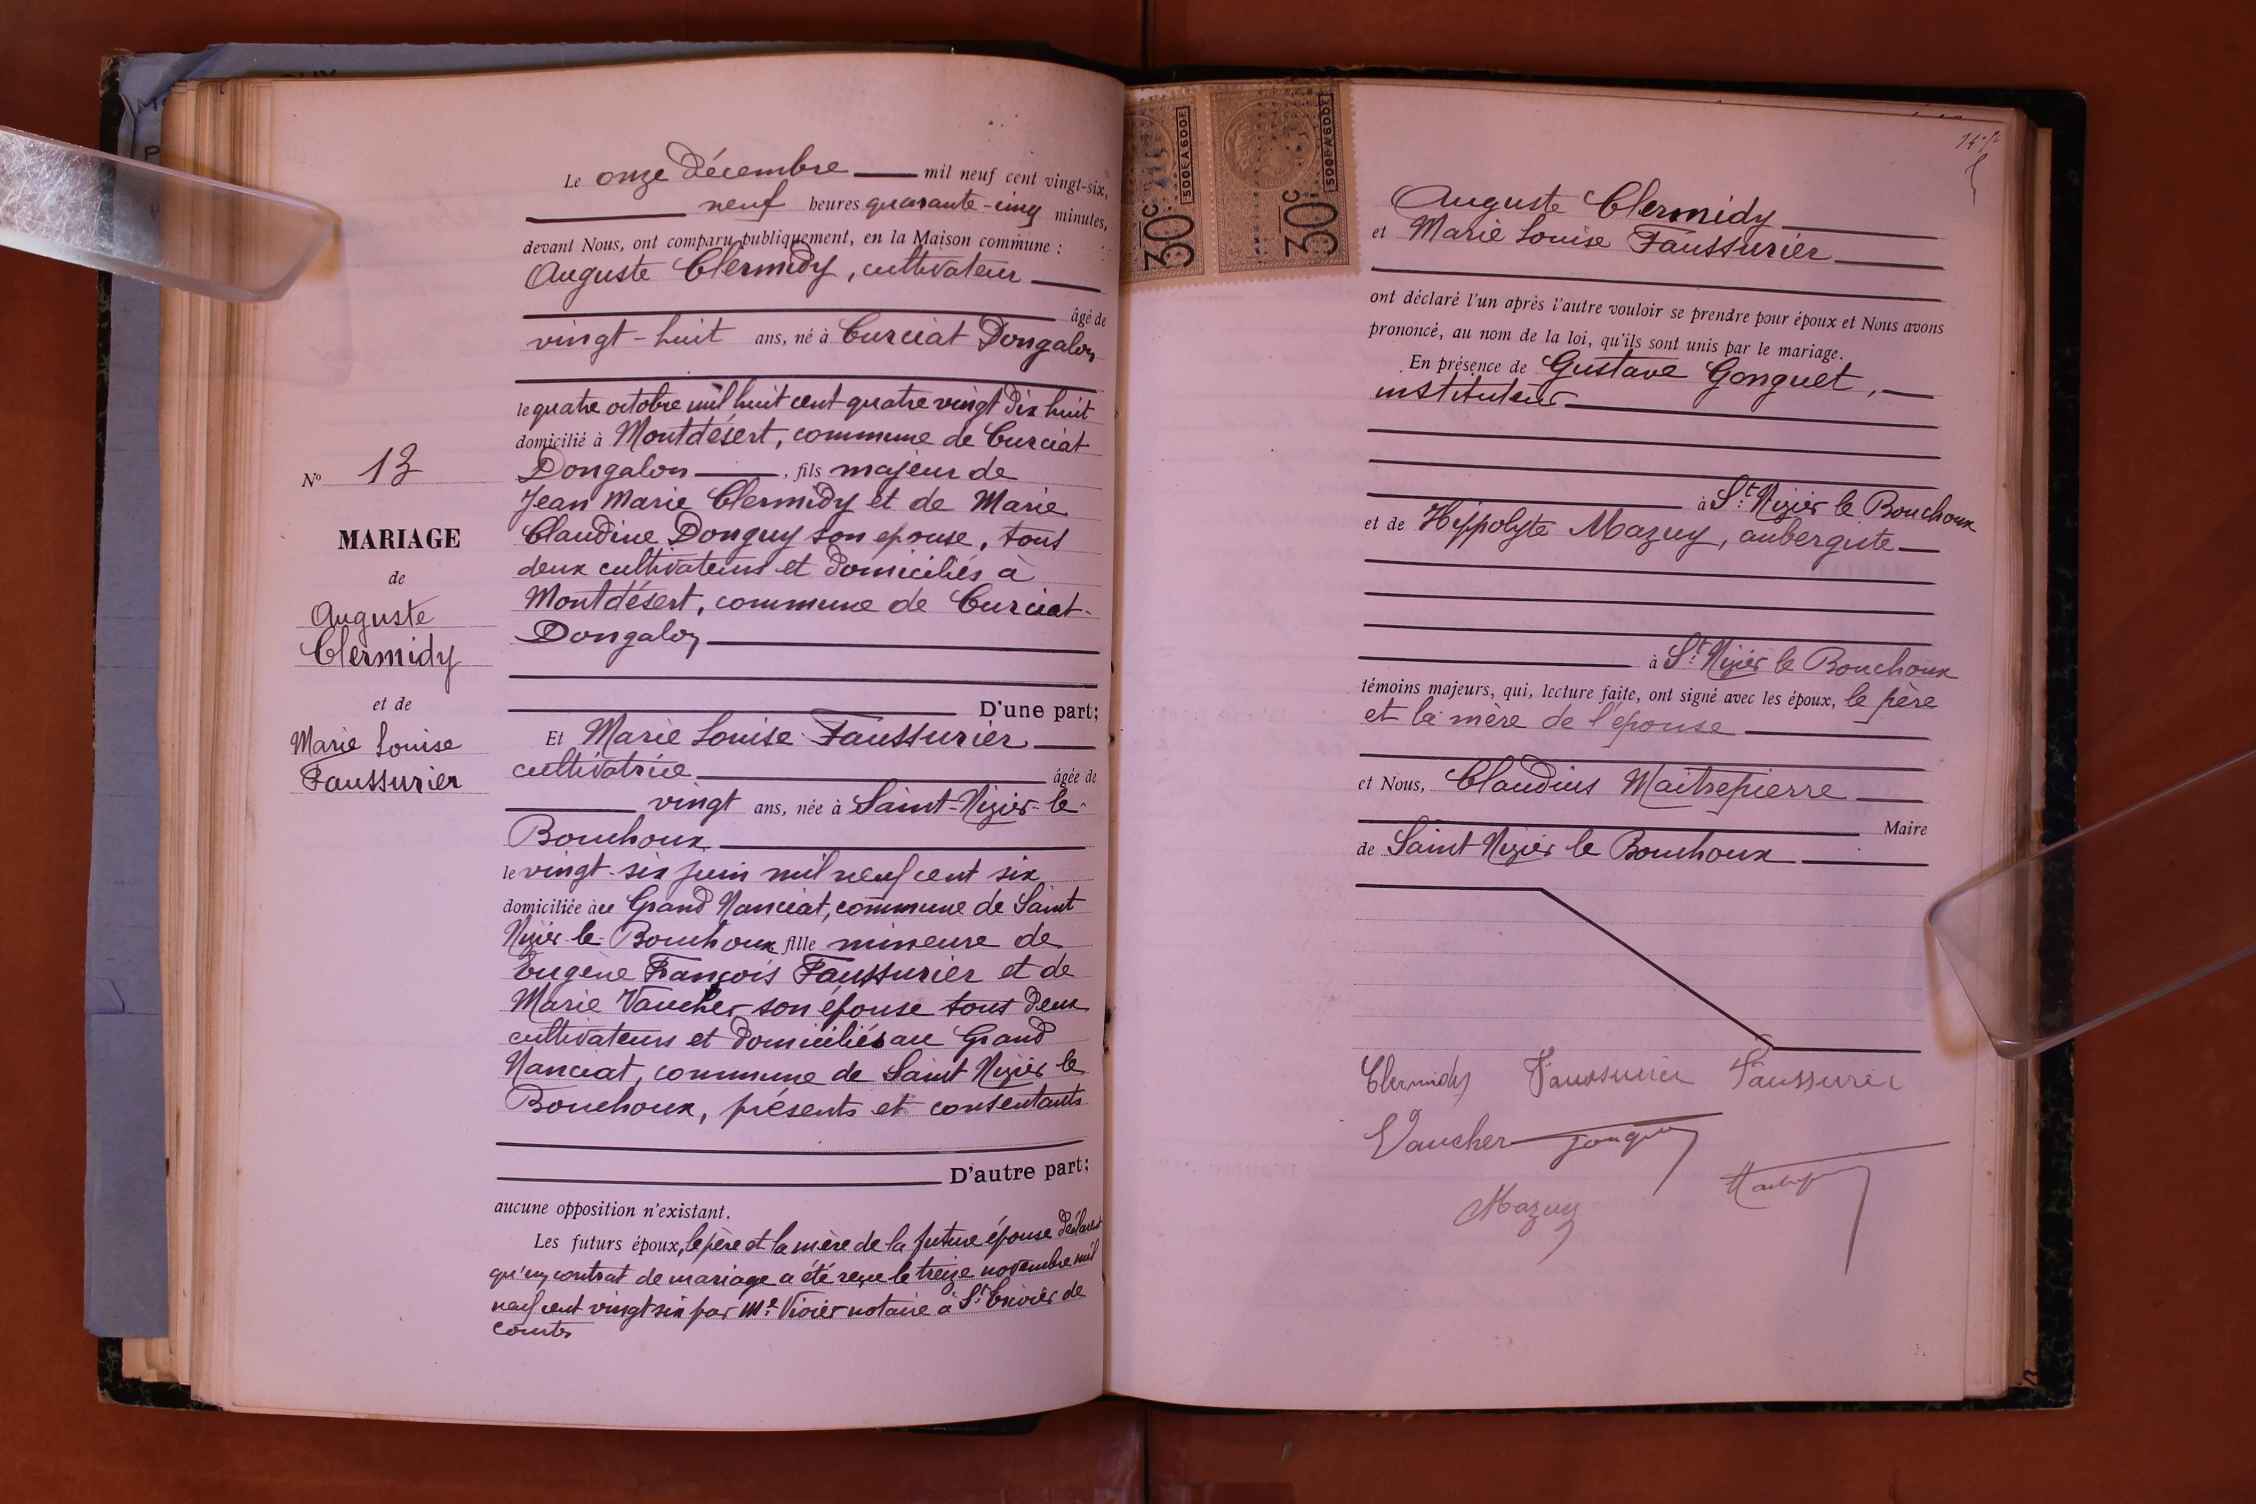 Le onze Décembre mil neuf cent vingt-six,
neuf heures quarante-cinq minutes,
devant Nous, ont comparu publiquement, en la Maison commune :
Auguste Clermidy, cultivateur
âgé de
vingt-huit ans, né à Curciat Dongalon
le quatre octobre mil huit cent quatre vingt dix huit
domicilié à Montdésert, commune de Curciat
Dongalon, fils majeur de
Jean Marie Clermidy et de Marie
Claudine Donguy son epouse, tous
deux cultivateurs et domiciliés à
Montdésert, commune de Curciat-
Dongalon
D'une part;
Et Marie Louise Faussurier
cultivatrice âgée de
vingt ans, née à Saint-Nizier-le-
Bouchoux
le vingt-six juin mil neuf cent six
domiciliée au Grand Nanciat, commune de Saint
Nizier le-Bouchoux fille mineure de
Eugène François Faussurier et de
Marie Vaucher son épouse tous deux
cultivateurs et domiciliés au Grand
Nanciat, commune de Saint Nizier le
Bouchoux, présents et consentants
D'autre part;
aucune opposition n'existant.
Les futurs époux, le père et la mère de la future épouse déclarent
qu'un contrat de mariage a été reçu le treize novembre mil
neuf cent vingt six par Me Vivier notaire à St Trivier de
Courtes
No 13
MARIAGE
de
Auguste
Clermidy
et de
Marie Louise
Faussurier
30c
500EA600E
30c
500EA600E
Auguste Clermidy
et Marie Louise Faussurier
ont déclaré l'un après l'autre vouloir se prendre pour époux et Nous avons
prononcé, au nom de la loi, qu'ils sont unis par le mariage.
En présence de Gustave Gonguet,
instituteur
à St Nizier le Bouchoux
et de Hippolyte Mazuy, aubergiste
à St Nizier le Bouchoux
témoins majeurs, qui, lecture faite, ont signé avec les époux, le père
et la mère de l'épouse
et Nous, Claudius Maitrepierre
Maire
de Saint Nizier le Bouchoux
Clermidy Faussurier Faussurier
Vaucher
Mazuy